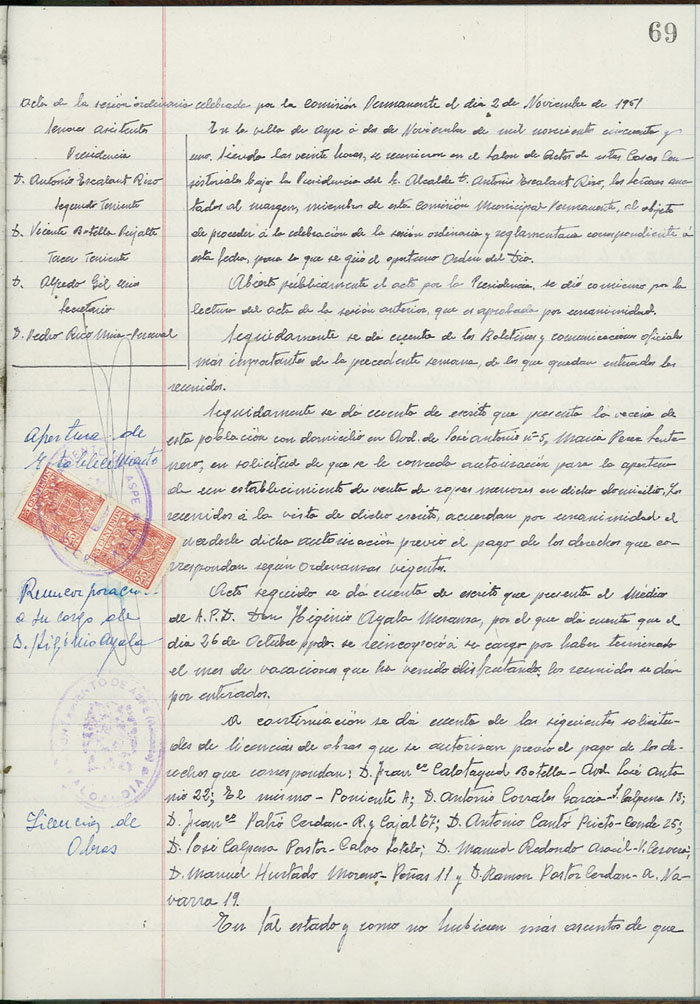 69
Acta de la sesión ordinaria celebrada por la Comisión Permanente el dia 2 de Noviembre de 1951
Señores Asistentes
Presidencia
D. Antonio Escalant Rizo
Segundo Teniente
D. Vicente Botella
Tercer Teniente
D. Alfredo Gil
Secretario
D. Pedro Rico
En la villa de Aspe á dos de Noviembre de mil novecientos cincuenta y
uno. Siendo las veinte horas, se reunieron en el Salon de Actos de estas Casas Con-
sistoriales bajo la Presidencia del Sr. Alcalde D. Antonio Escalant Rizo, los Señores ano-
tados al margen, miembros de esta Comisión Municipal Permanente, al objeto
de proceder á la celebración de la sesión ordinaria y reglamentaria correspondiente á
esta fecha, para lo que se giró el oportuno Orden del Dia.
Abierto públicamente el acto por la Presidencia, se dió comienzo por la
lectura del acta de la sesión anterior, que es aprobada por unanimidad.
Seguidamente se dá cuenta de los Boletines y comunicaciones oficiales
más importantes de la precedente semana, de los que quedan enterados los
reunidos.
Apertura de
Establecimiento
Seguidamente se dá cuenta de escrito que presenta la vecina de
esta población con domicilio en Avd. de José Antonio nº 5, Maria Perez
en solicitud de que se le conceda autorización para la apertura
de un establecimiento de venta de ropas menores en dicho domicilio. Los
reunidos á la vista de dicho escrito, acuerdan por unanimidad el
concederle dicha autorización previo el pago de los derechos que co-
rrespondan según ordenanzas vigentes.
Reincorporación
a su cargo de
D. Higinio Ayala
Acto seguido se dá cuenta de escrito que presenta el Médico
de A.P.D. Don Higinio Ayala por el que dá cuenta que el
dia 26 de Octubre ppdo. se reincorporó á su cargo por haber terminado
el mes de vacaciones que ha venido disfrutando, los reunidos se dán
por enterados.
Licencias de
Obras
A continuación se dá cuenta de las siguientes solicitu-
des de licencias de obras que se autorizan previo el pago de los de-
rechos que correspondan; D. Franco Calatayud Botella - Avd. José Anto-
nio 22; El mismo - Poniente A; D. Antonio Corrales Garcia - Calpena 13;
D. Franco Pastor Cerdan - R. y Cajal 67; D. Antonio Cantó Prieto - Conde 25;
D. José Calpena Pastor - Calvo Sotelo; D. Manuel Redondo
D. Manuel Hurtado Moreno - Peñas 11 y D. Ramon Pastor Cerdan - A. Na-
varra 19.
En tal estado y como no hubieran más asuntos de que